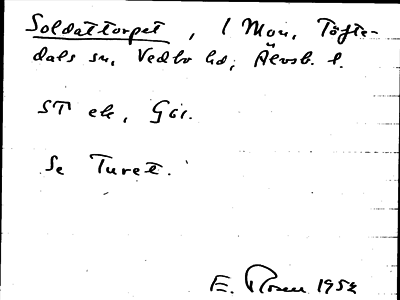 Soldattorpet, 1 Mon, Töfte-
dals sn, Vedbo hd, Älvsb. l.
ST ek, Gäs.
Se Turet.
E. Rosen 1952